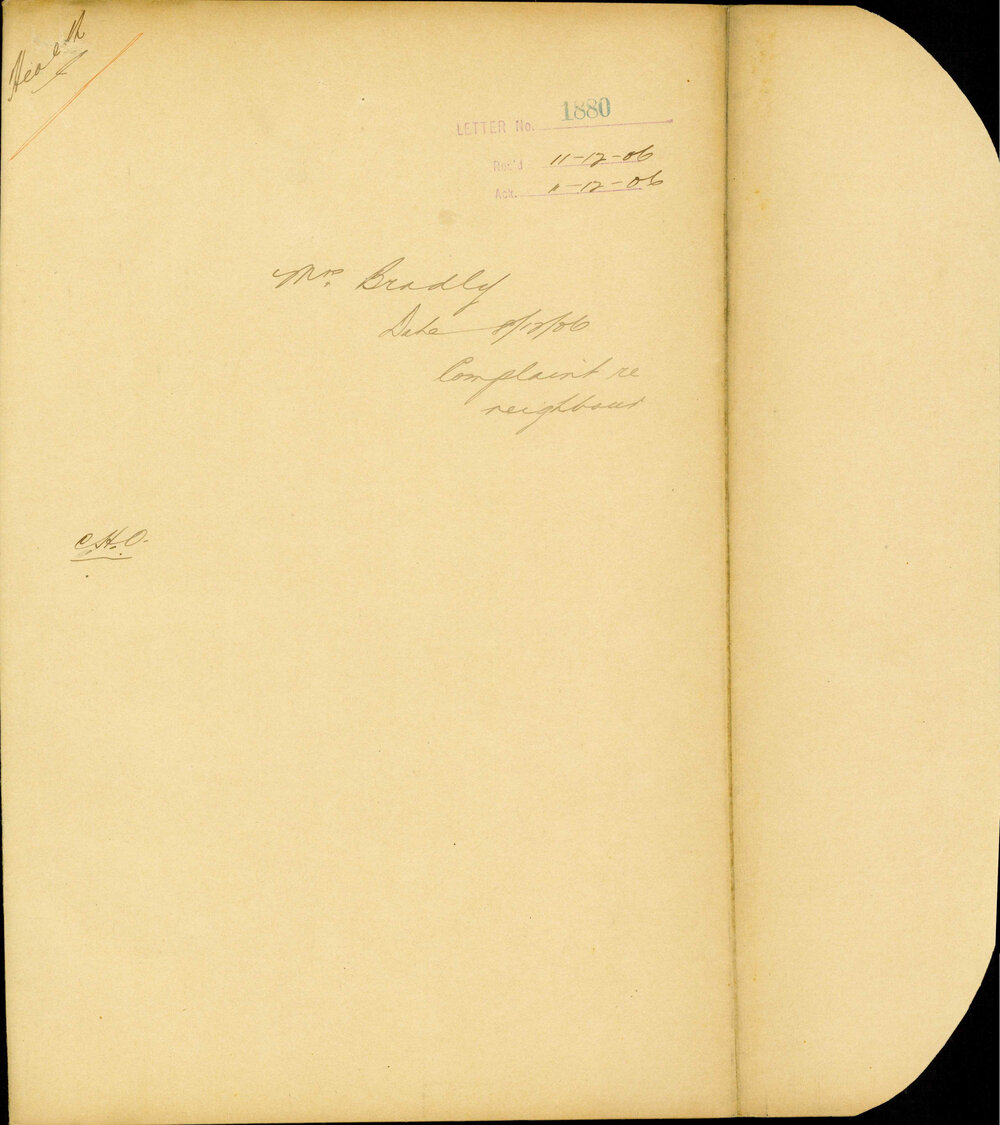 Health
LETTER No. 1880
Rec'd 11-12-06
Ack. 11-12-06
Mrs. Bradly
Date 8/12/06
Complaint re
neighbour
C.H.O.